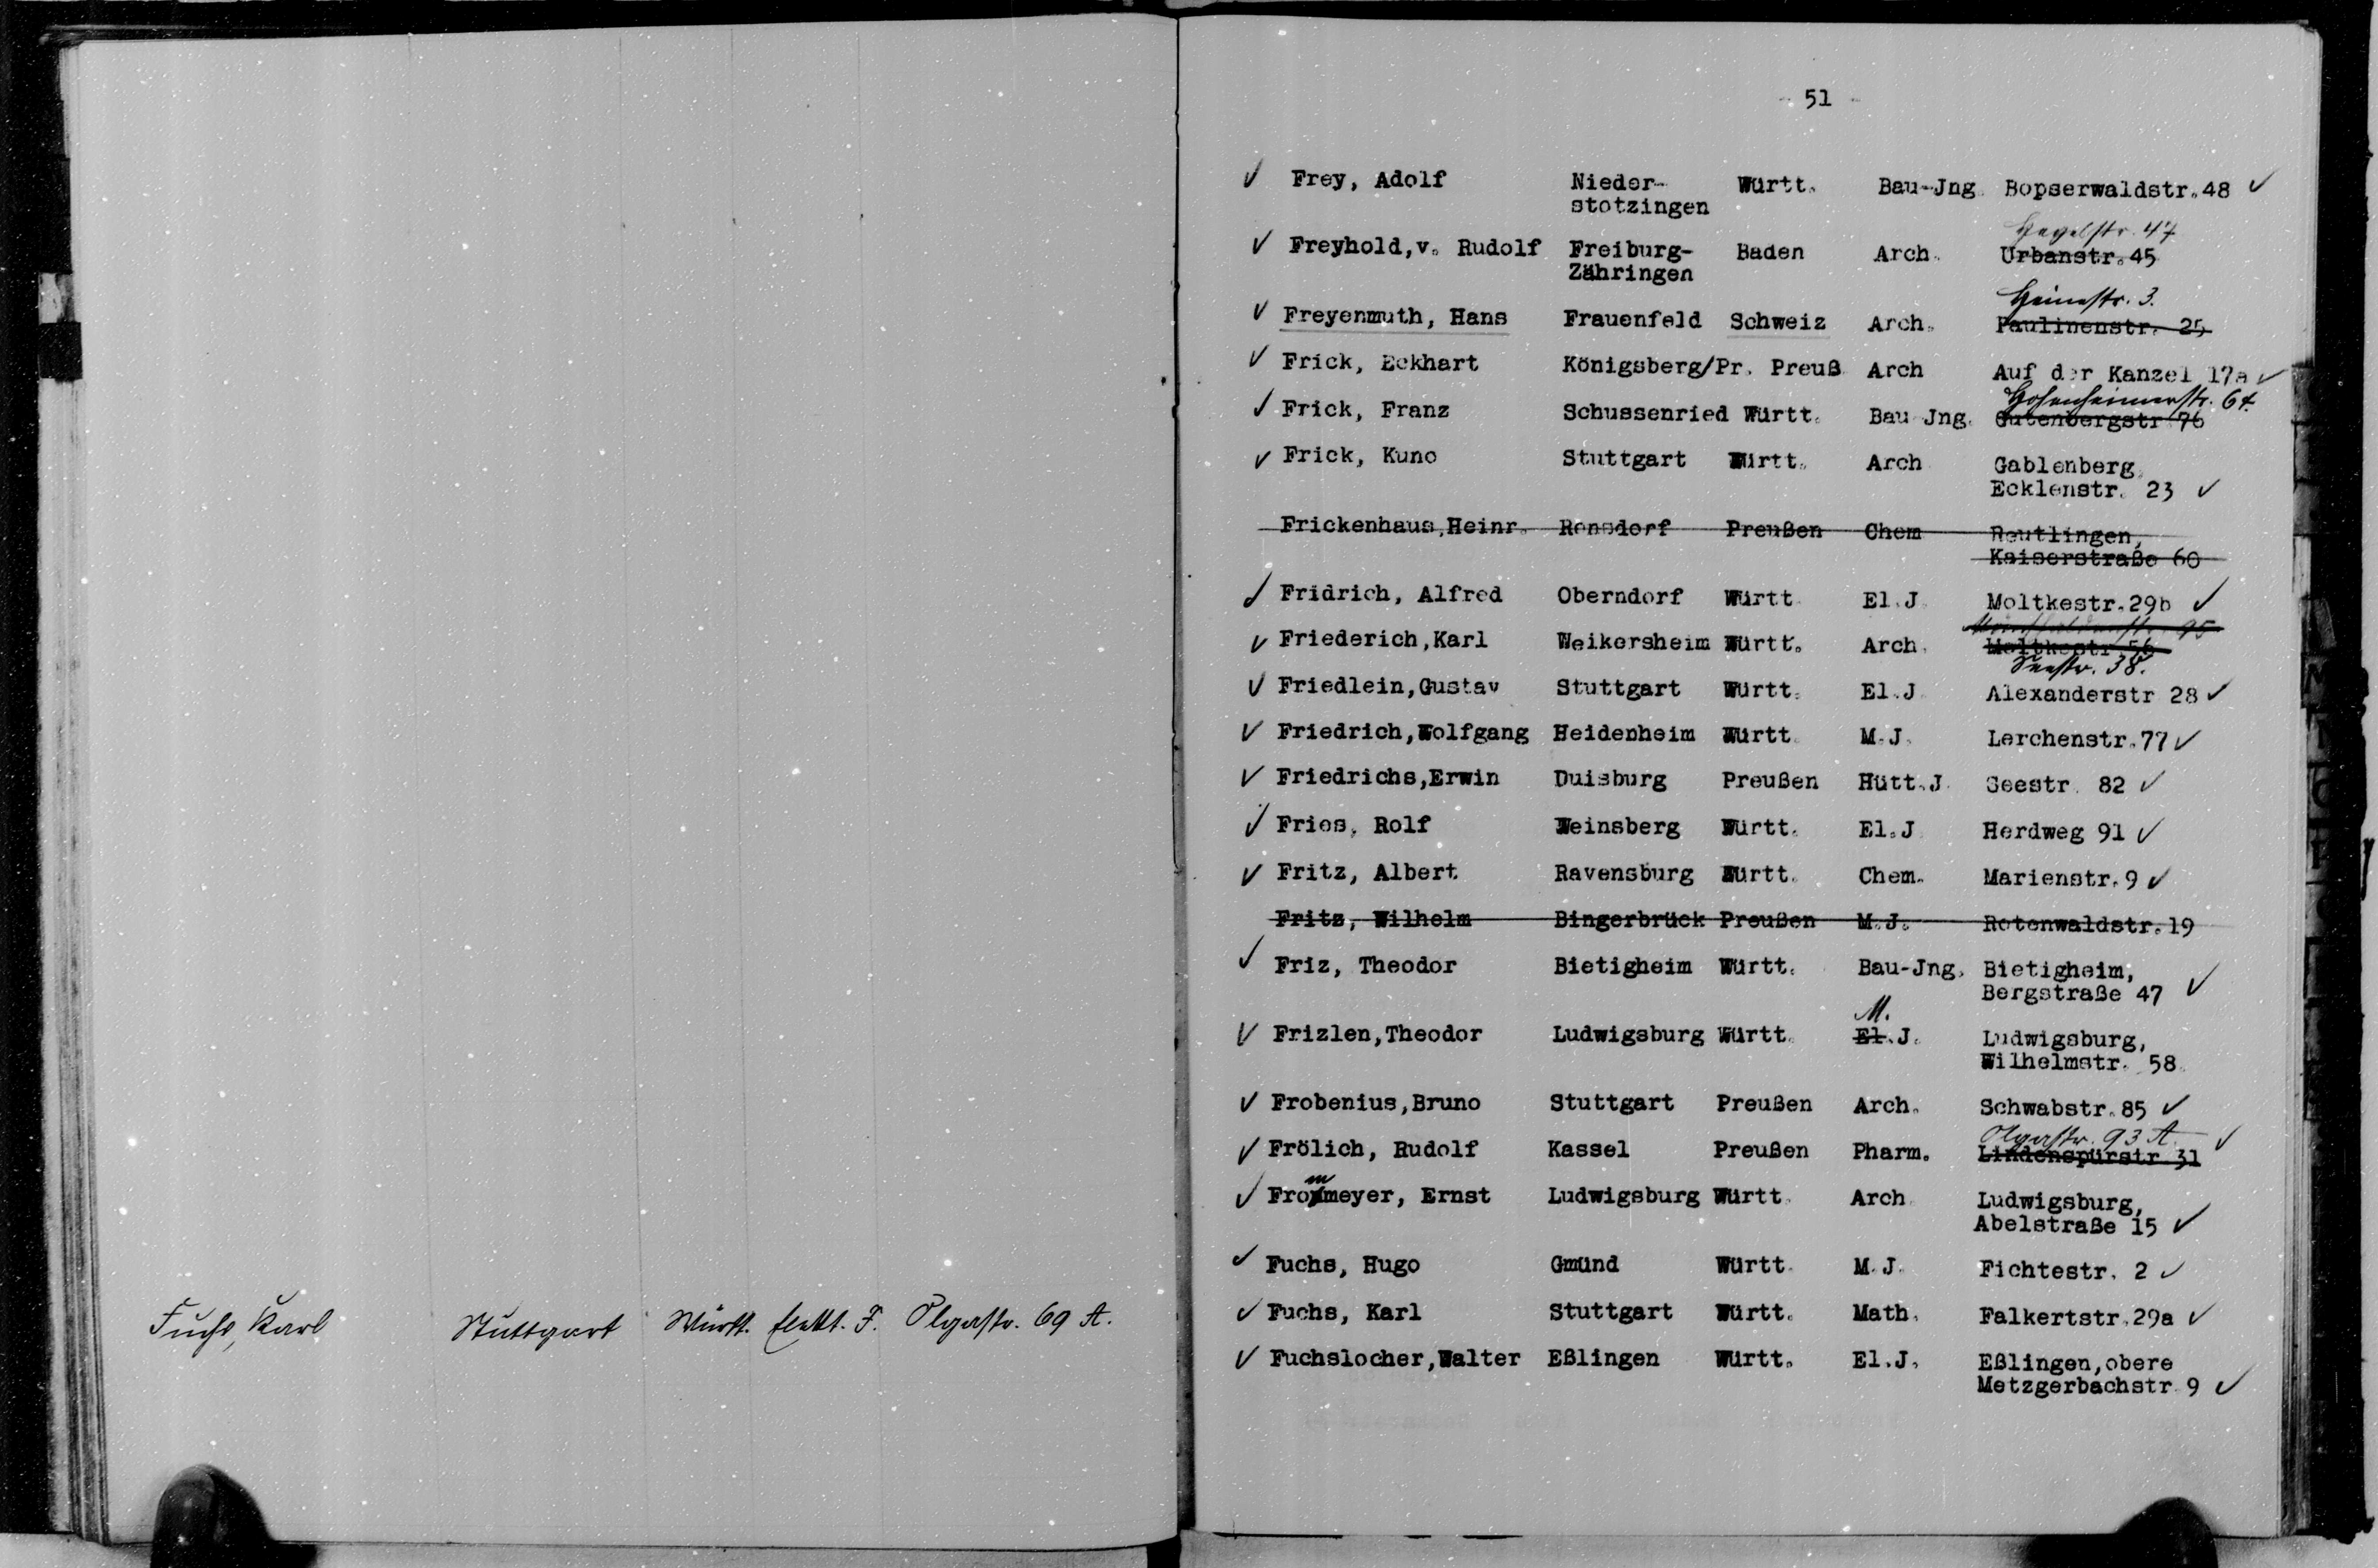 Fuchs, Karl Stuttgart Württ. Elekt. J. Olgastr. 69 A.
- 51 -
✓ Frey, Adolf Nieder- Württ. Bau-Jng. Bopserwaldstr.48 ✓
stotzingen
Hegelstr. 47
✓ Freyhold,v. Rudolf Freiburg- Baden Arch. Urbanstr.45
Zähringen
Heinestr. 3.
✓ Freyenmuth, Hans Frauenfeld Schweiz Arch. Paulinenstr. 25
✓ Frick, Eckhart Königsberg/Pr. Preuß Arch Auf der Kanzel 17a ✓
Hohenheimerstr. 64.
✓ Frick, Franz Schussenried Württ. Bau Jng. Gutenbergstr 76
✓ Frick, Kuno Stuttgart Württ. Arch Gablenberg,
Ecklenstr. 23 ✓
Frickenhaus,Heinr. Ronsdorf Preußen Chem Reutlingen,
Kaiserstraße 60
✓ Fridrich, Alfred Oberndorf Württ. El.J. Moltkestr.29b ✓
95
✓ Friederich,Karl Weikersheim Württ. Arch. Moltkestr 56
Seestr. 38.
✓ Friedlein,Gustav Stuttgart Württ. El.J. Alexanderstr 28 ✓
✓ Friedrich,Wolfgang Heidenheim Württ. M.J. Lerchenstr.77 ✓
✓ Friedrichs,Erwin Duisburg Preußen Hütt.J. Seestr. 82 ✓
✓ Fries, Rolf Weinsberg Württ. El.J Herdweg 91 ✓
✓ Fritz, Albert Ravensburg Württ. Chem. Marienstr.9 ✓
Fritz, Wilhelm Bingerbrück Preußen M.J. Rotenwaldstr.19
✓ Friz, Theodor Bietigheim Württ. Bau-Jng. Bietigheim,
Bergstraße 47 ✓
M.
✓ Frizlen,Theodor Ludwigsburg Württ. El.J. Ludwigsburg,
Wilhelmstr. 58
✓ Frobenius,Bruno Stuttgart Preußen Arch. Schwabstr.85 ✓
Olgastr. 93 A. ✓
✓ Frölich, Rudolf Kassel Preußen Pharm. Lindenspürstr 31
✓ Frommeyer, Ernst Ludwigsburg Württ. Arch Ludwigsburg,
Abelstraße 15 ✓
✓ Fuchs, Hugo Gmünd Württ. M.J. Fichtestr. 2 ✓
✓ Fuchs, Karl Stuttgart Württ. Math. Falkertstr.29a ✓
✓ Fuchslocher,Walter Eßlingen Württ. El.J. Eßlingen,obere
Metzgerbachstr 9 ✓